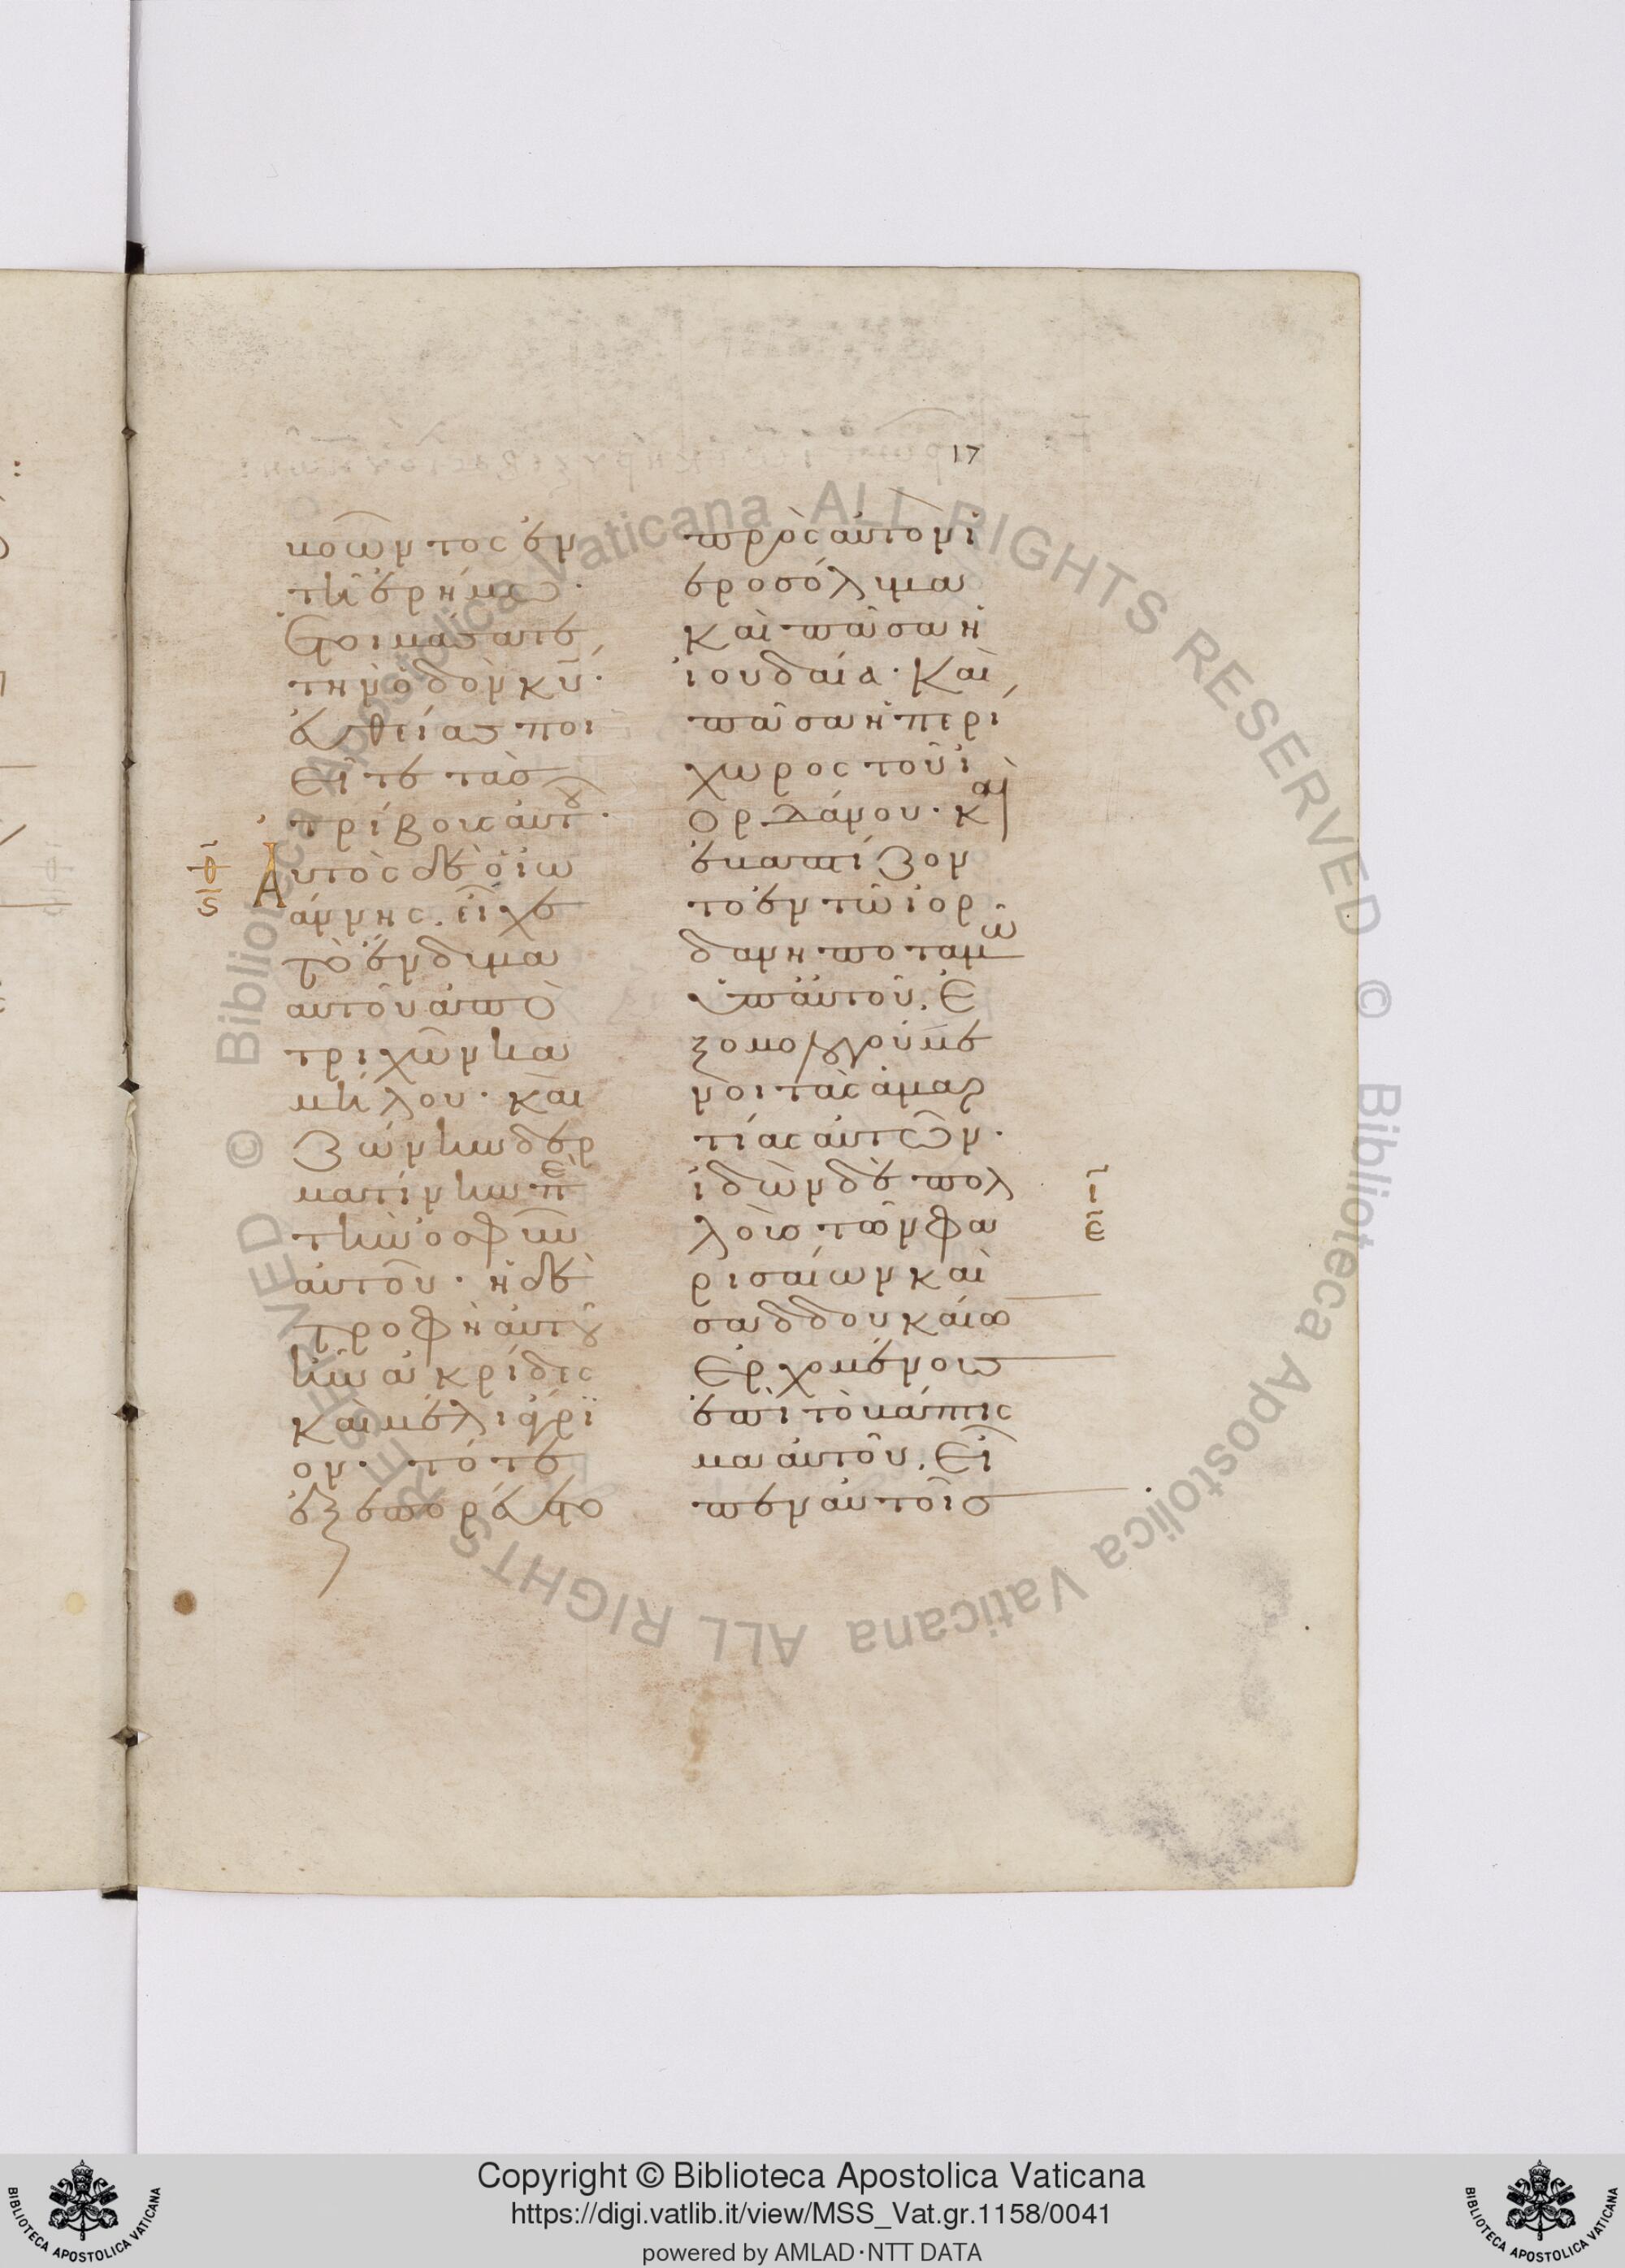 17
κοῶντος ἐν
τῆ ἐρήμω·
Ἑτοιμάσατε
τὴν ὁδὸν κῡ·
ἐυθείασ ποι
εῖτε τὰσ
τρίβους ἀυτοῦ·
Ἀυτὸς δὲ ὁ ἰω
άννης, εῖχε
τὸ ἔνδυμα
αυτοῦ ἀπὸ
τριχῶν κα
μήλου· καὶ
ζώνην δερ
ματίνην πε
ρὶ
τὴν ὀσφῦν
ἀυτοῦ· ἡ δὲ
τροφὴ ἀυτοῦ
ἦν ἀκρίδες
καὶ μέλι ἄγρϊ
ον· τότε
ἐξεπορέυετο
πρὸς ἀυτὸν ἱ
εροσόλυμα
καὶ πᾶσα ἡ
ἰουδαία· Καὶ
πᾶσα ἡ περί
χωρος τοῦ ἰ
ορδάνου· καὶ
ἐβαπτίζον
το ἐν τῶ ἰορ
δάνη ποταμῶ
ὑπ' ἀυτοῦ, Ἐ
ξομολογούμε
νοι τὰς ἁμαρ
τίας ἀυτῶν·
ἰδὼν δὲ πολ
λοὺσ τῶν φα
ρισαίων καὶ
σαδδουκαίων
Ἐρχομένουσ
ἐπὶ τὸ βάπτισ
μα ἀυτοῦ, Εἶ
πεν ἀυτοῖσ
ῑ
ε̄
Copyright © Biblioteca Apostolica Vaticana
https://digi.vatlib.it/view/MSS_Vat.gr.1158/0041
powered by AMLAD·NTT DATA
BIBLIOTECA APOSTOLICA VATICANA
BIBLIOTECA APOSTOLICA VATICANA
© Biblioteca Apostolica Vaticana ALL RIGHTS RESERVED
© Biblioteca Apostolica Vaticana ALL RIGHTS RESERVED